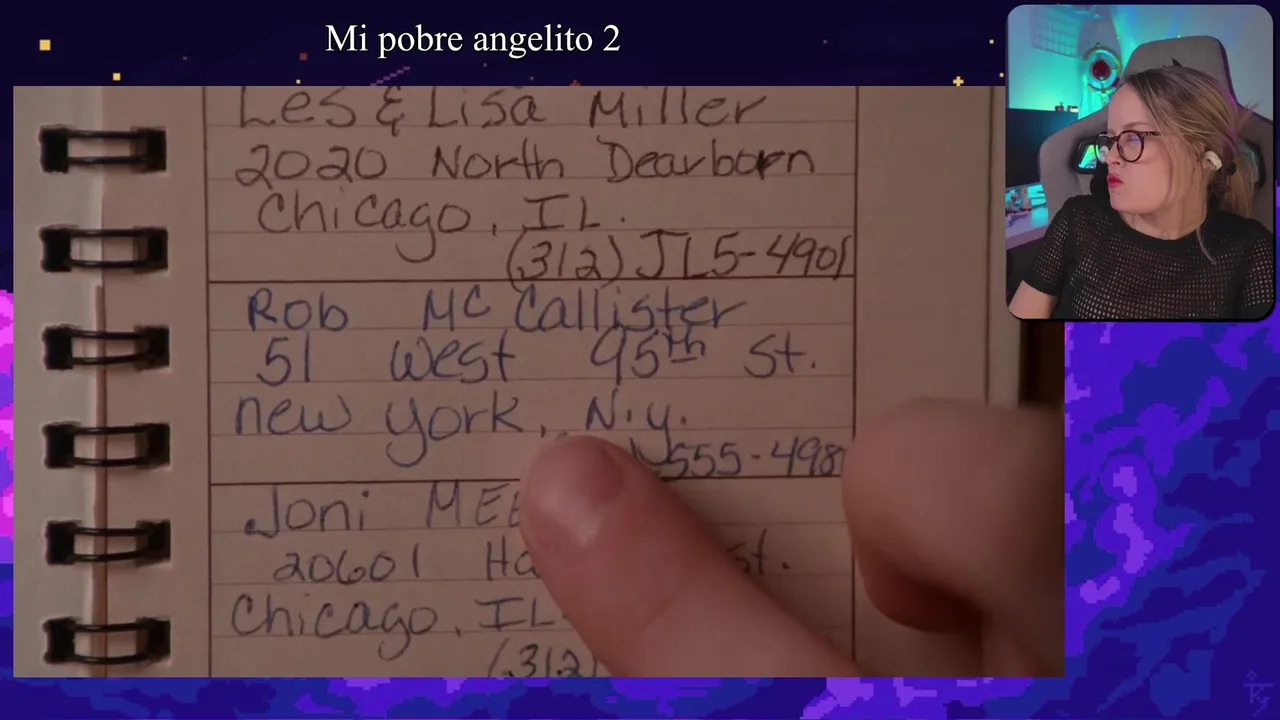 Mi pobre angelito 2
Les & Lisa Miller
2020 North Dearborn
Chicago, IL.
(312) JL5-4901
Rob McCallister
51 West 95th St.
new york, N.y.
555-498
Joni
20601 st.
Chicago, IL
(312)